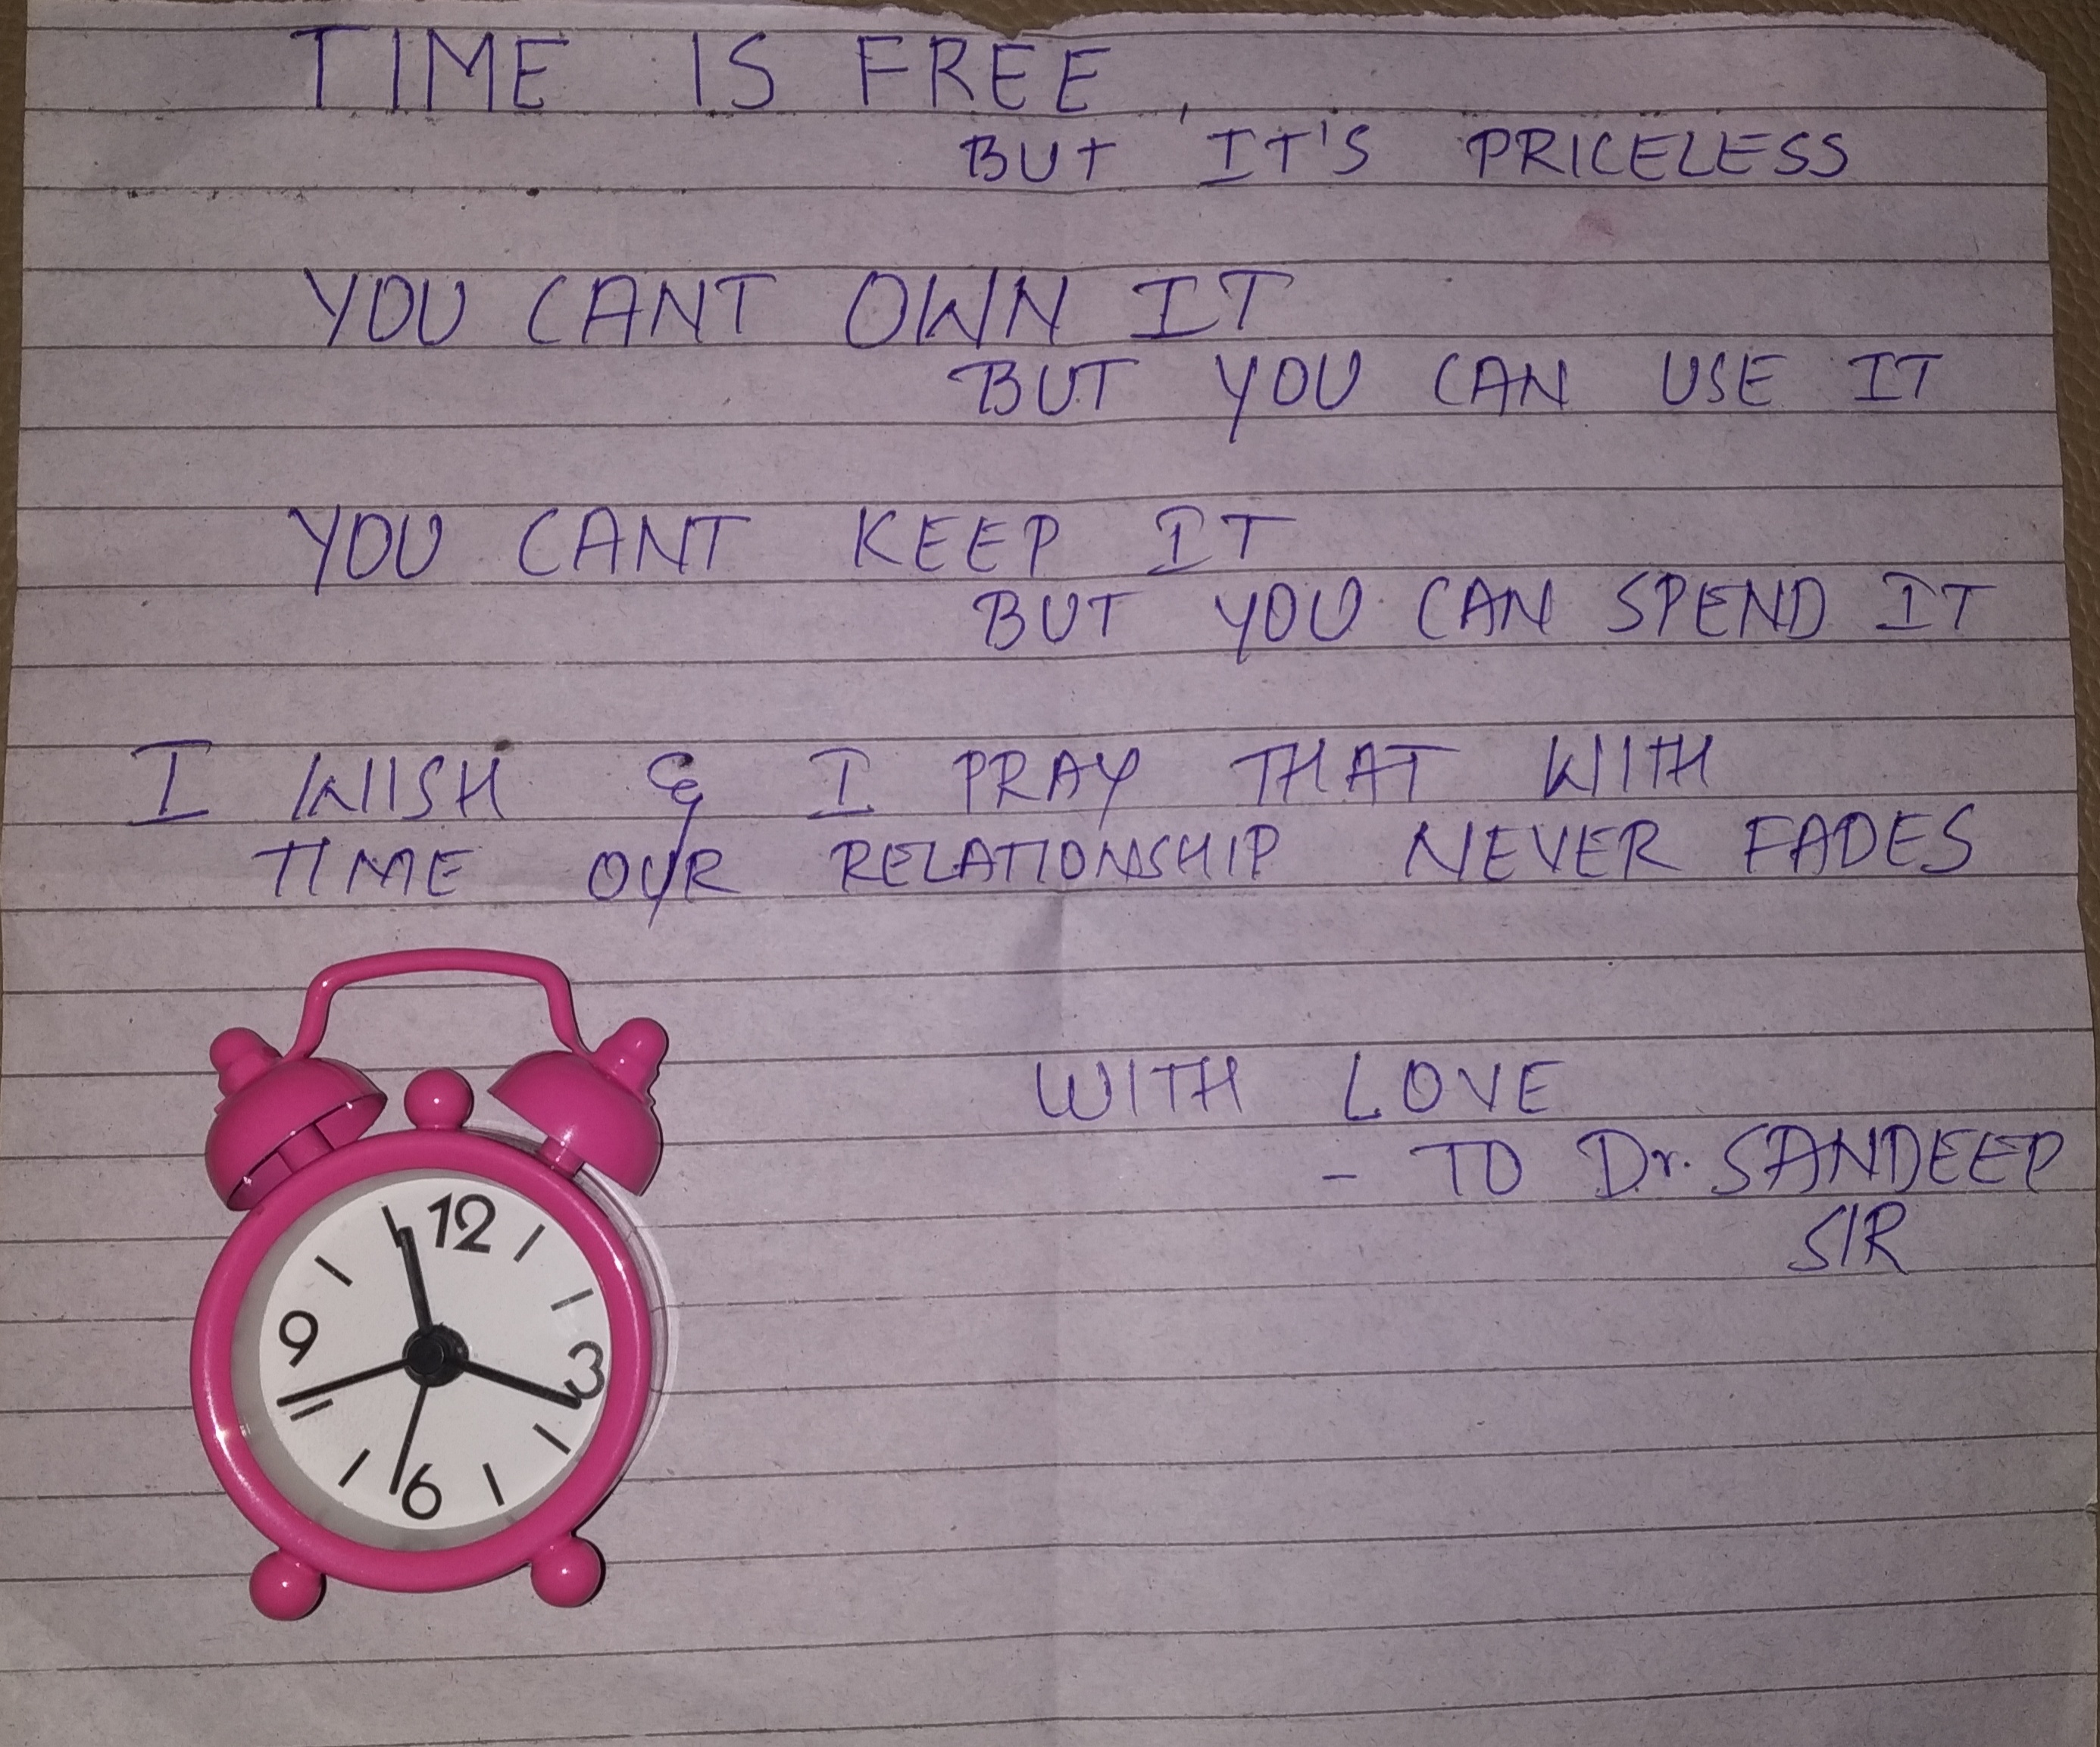 TIME IS FREE,
BUT IT'S PRICELESS
YOU CANT OWN IT
BUT YOU CAN USE IT
YOU CANT KEEP IT
BUT YOU CAN SPEND IT
I WISH & I PRAY THAT WITH
TIME OUR RELATIONSHIP NEVER FADES
WITH LOVE
- TO Dr. SANDEEP
SIR
12
9
3
6